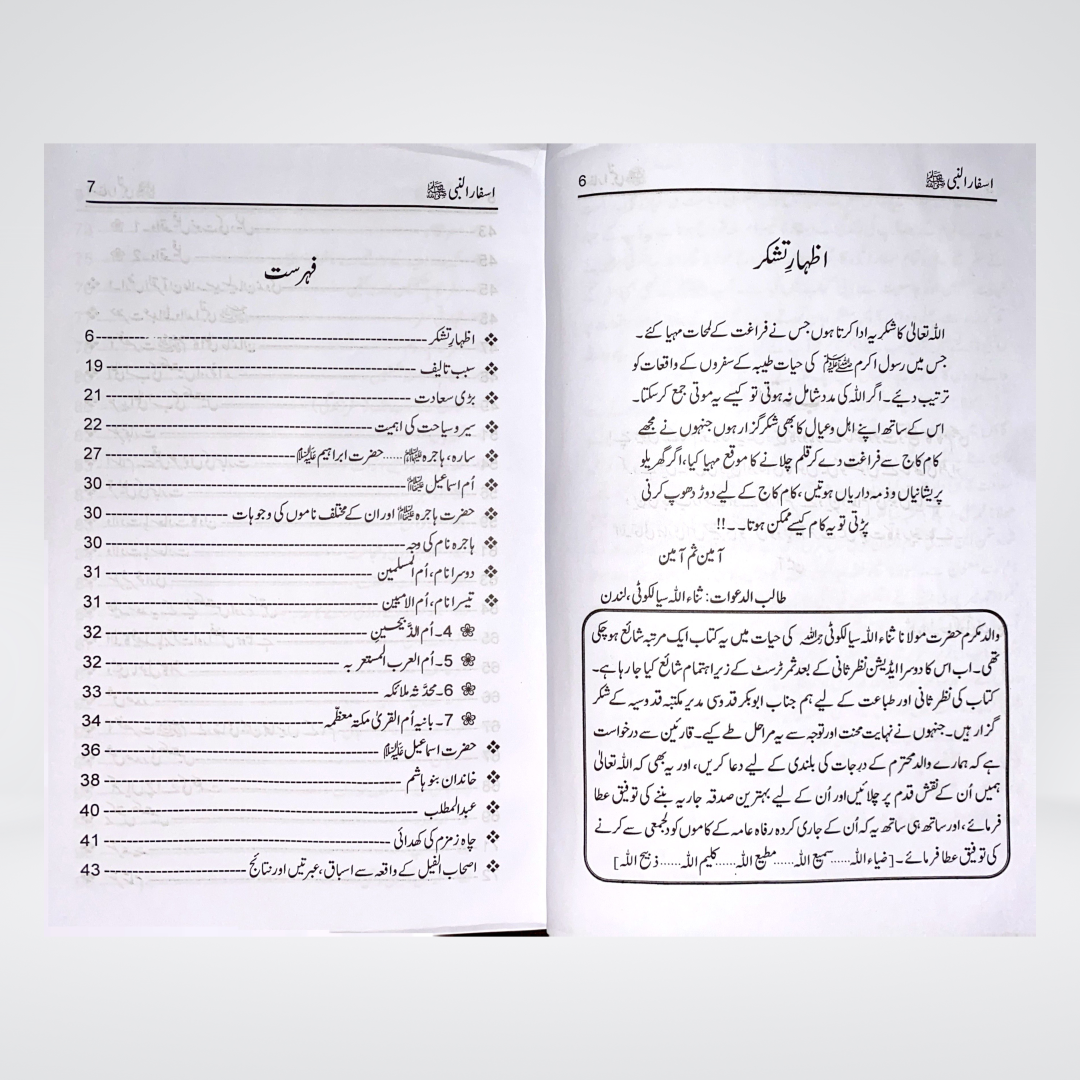 6 اسفار النبی ﷺ
اظہارِ تشکر
اللہ تعالیٰ کا شکریہ ادا کرتا ہوں جس نے فراغت کے لمحات مہیا کئے۔
جس میں رسول اکرم ﷺ کی حیات طیبہ کے سفروں کے واقعات کو
ترتیب دیئے۔ اگر اللہ کی مدد شامل نہ ہوتی تو کیسے یہ موتی جمع کر سکتا۔
اس کے ساتھ اپنے اہل و عیال کا بھی شکر گزار ہوں جنہوں نے مجھے
کام کاج سے فراغت دے کر قلم چلانے کا موقع مہیا کیا، اگر گھریلو
پریشانیاں و ذمہ داریاں ہوتیں، کام کاج کے لیے دوڑ دھوپ کرنی
پڑتی تو یہ کام کیسے ممکن ہوتا۔۔!!
آمین ثم آمین
طالب الدعوات: ثناء اللہ سیالکوٹی، لندن
والد مکرم حضرت مولانا ثناء اللہ سیالکوٹی رحمہ اللہ کی حیات میں یہ کتاب ایک مرتبہ شائع ہو چکی
تھی۔ اب اس کا دوسرا ایڈیشن نظر ثانی کے بعد ثمر ٹرسٹ کے زیر اہتمام شائع کیا جا رہا ہے۔
کتاب کی نظر ثانی اور طباعت کے لیے ہم جناب ابوبکر قدوسی مدیر مکتبہ قدوسیہ کے شکر
گزار ہیں۔ جنہوں نے نہایت محنت اور توجہ سے یہ مراحل طے کیے۔ قارئین سے درخواست
ہے کہ ہمارے والد محترم کے درجات کی بلندی کے لیے دعا کریں، اور یہ بھی کہ اللہ تعالیٰ
ہمیں اُن کے نقش قدم پر چلائیں اور اُن کے لیے بہترین صدقہ جاریہ بننے کی توفیق عطا
فرمائے، اور ساتھ ہی ساتھ یہ کہ اُن کے جاری کردہ رفاہ عامہ کے کاموں کو دلجمعی سے کرنے
کی توفیق عطا فرمائے۔ [ضیاء اللہ......سمیع اللہ......مطیع اللہ......کلیم اللہ......ذبیح اللہ]
7 اسفار النبی ﷺ
فہرست
❖ اظہارِ تشکر ---------- 6
❖ سبب تالیف ---------- 19
❖ بڑی سعادت ---------- 21
❖ سیر و سیاحت کی اہمیت ---------- 22
❖ سارہ، ہاجرہ علیہا السلام......حضرت ابراہیم علیہ السلام ---------- 27
❖ اُم اسماعیل علیہا السلام ---------- 30
❖ حضرت ہاجرہ علیہا السلام اور ان کے مختلف ناموں کی وجوہات ---------- 30
❖ ہاجرہ نام کی وجہ ---------- 30
❖ دوسرا نام، اُم المسلمین ---------- 31
❖ تیسرا نام، اُم الامیین ---------- 31
❀ 4۔ اُم الذَّبِیْحَیْنِ ---------- 32
❀ 5۔ اُم العرب المستعربہ ---------- 32
❀ 6۔ محدَّثہ ملائکہ ---------- 33
❀ 7۔ بانیہ اُم القریٰ مکہ معظمہ ---------- 34
❖ حضرت اسماعیل علیہ السلام ---------- 36
❖ خاندان بنو ہاشم ---------- 38
❖ عبدالمطلب ---------- 40
❖ چاہ زمزم کی کھدائی ---------- 41
❖ اصحاب الفیل کے واقعہ سے اسباق، عبرتیں اور نتائج ---------- 43